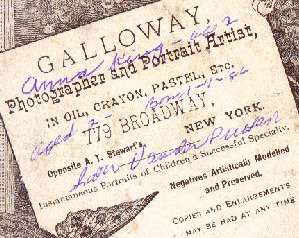 GALLOWAY,
Anna King
Photographer and Portrait Artist,
IN OIL, CRAYON, PASTEL, ETC.
aged 2 - Born
779 BROADWAY,
Opposite A. T. Stewart's NEW YORK.
Instantaneous Portraits of Children a Successful Specialty.
Negatives Artistically Modeled
and Preserved.
COPIES AND ENLARGEMENTS
MAY BE HAD AT ANY TIME